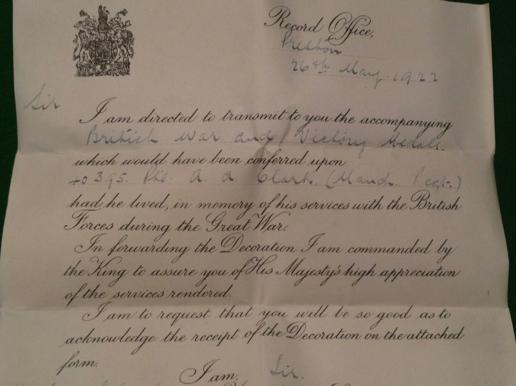 Record Office,
Preston
26th May. 1922
Sir
I am directed to transmit to you the accompanying
British War and Victory Medals
which would have been conferred upon
40395. Pte. A. A. Clark. (Manch. Regt.)
had he lived, in memory of his services with the British
Forces during the Great War.
In forwarding the Decoration I am commanded by
the King to assure you of His Majesty's high appreciation
of the services rendered.
I am to request that you will be so good as to
acknowledge the receipt of the Decoration on the attached
form.
I am, Sir.